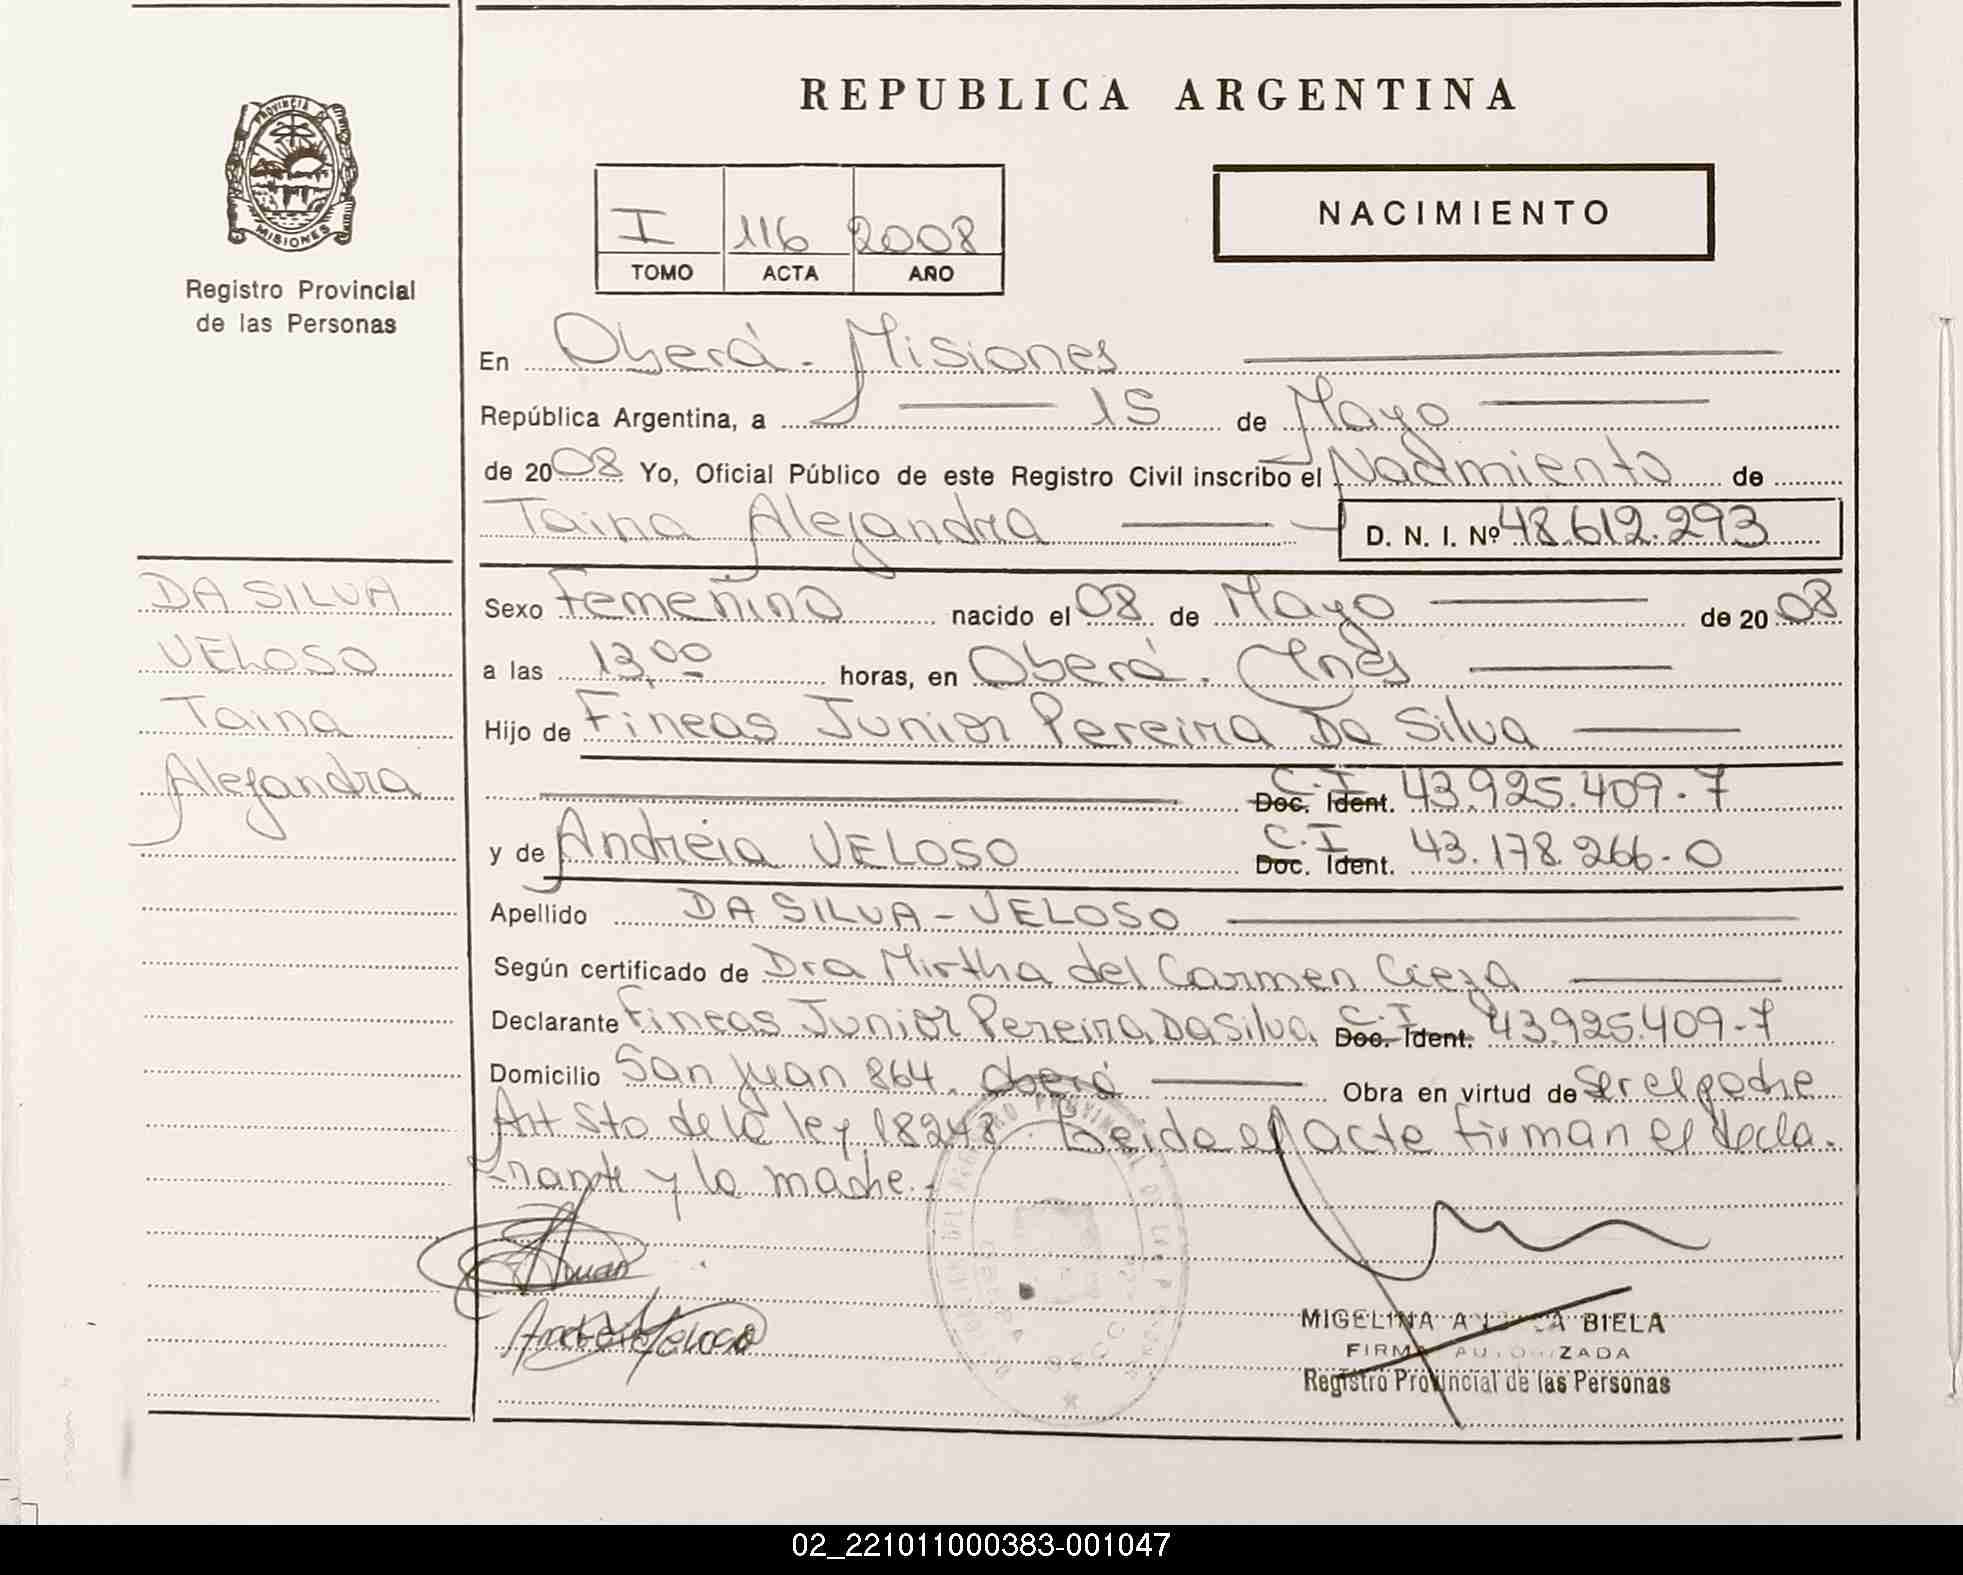 REPUBLICA ARGENTINA
PROVINCIA
MISIONES
Registro Provincial
de las Personas
I 116 2008
TOMO ACTA AÑO
NACIMIENTO
En Oberá - Misiones
República Argentina, a 15 de Mayo
de 2008 Yo, Oficial Público de este Registro Civil inscribo el Nacimiento de
Taina Alejandra D. N. I. Nº 48.612.293
DA SILVA
VELOSO
Taina
Alejandra
Sexo Femenino nacido el 08 de Mayo de 2008
a las 13,00 horas, en Oberá. Mnes
Hijo de Fineas Junior Pereira Da Silva
C.I
Doc. Ident. 43.925.409-7
y de Andréia VELOSO C.I Doc. Ident. 43.178.266-0
Apellido DA SILVA - VELOSO
Según certificado de Dra Mirtha del Carmen Cieza
Declarante Fineas Junior Pereira Da Silva C.I Doc. Ident. 43.925.409-7
Domicilio San Juan 864. Oberá Obra en virtud de Ser el padre
Art 5to de la ley 18248. Leida el acta firman el decla-
rante y la madre.-
Andréia Veloso
MIGELINA BIELA
FIRMA AUTORIZADA
Registro Provincial de las Personas
02_221011000383-001047